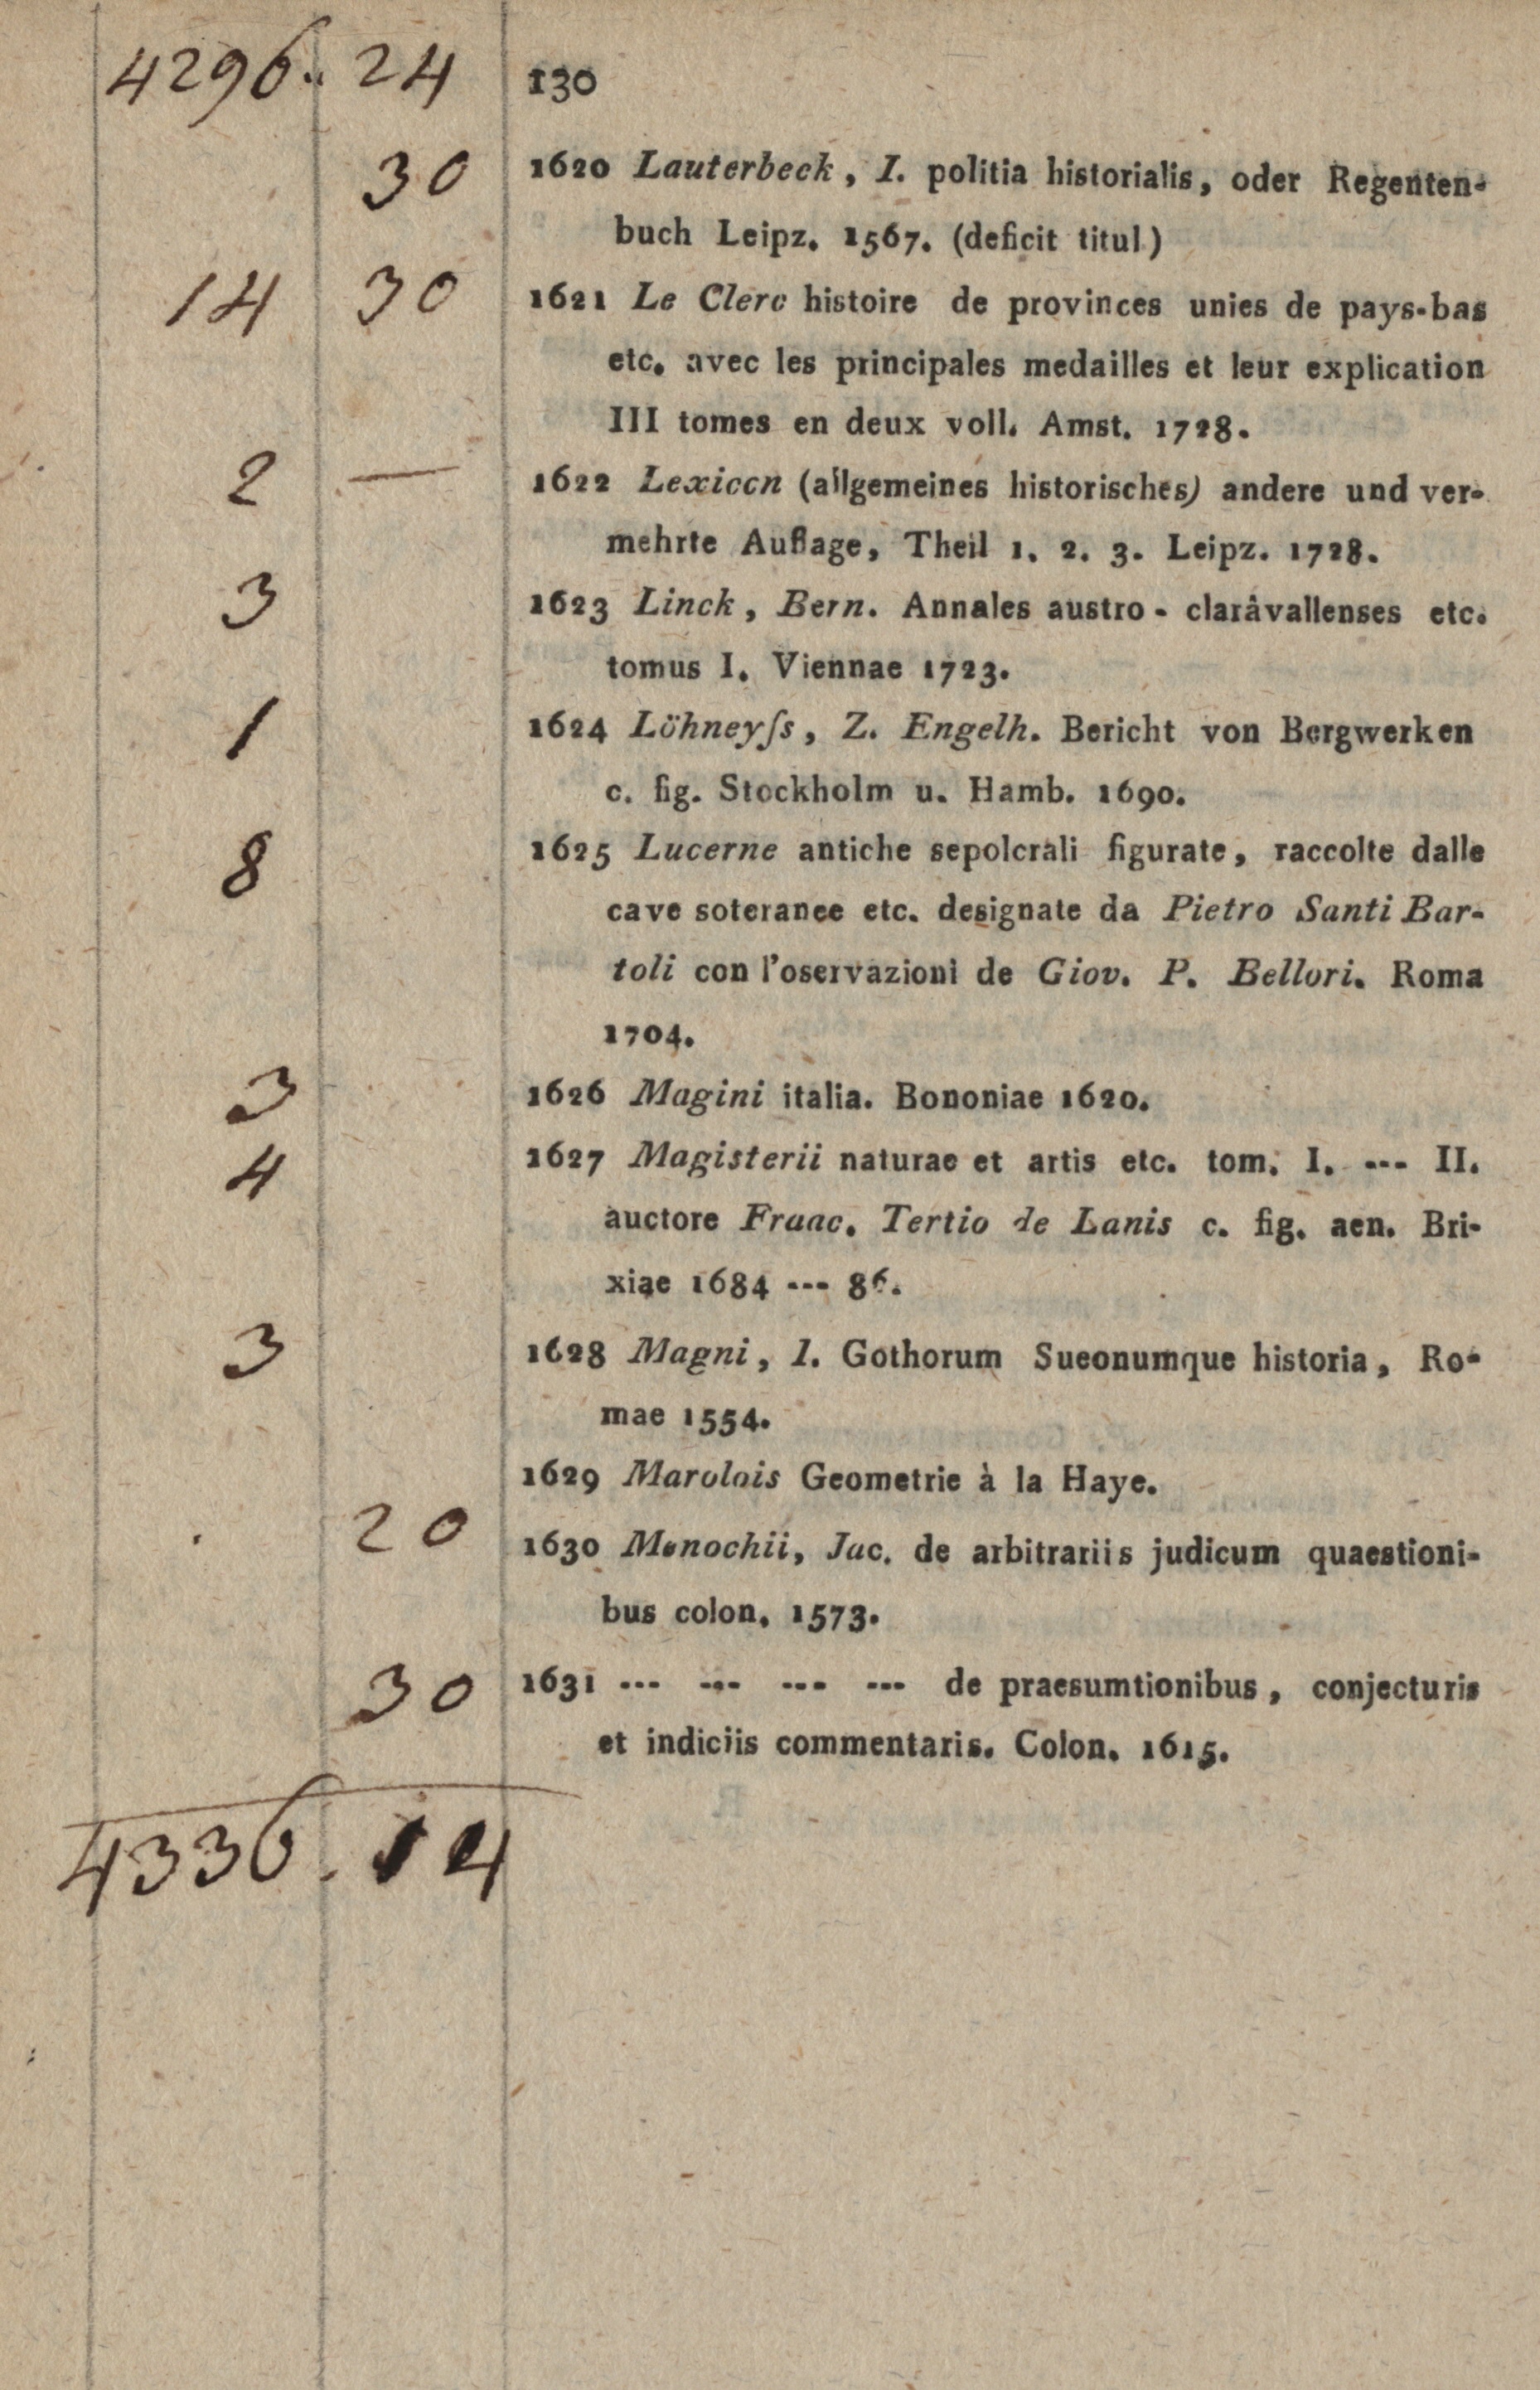 4296. 24 130
30 1620 Lauterbeck, I. politia historialis, oder Regenten-
buch Leipz. 1567. (deficit titul)
14 30 1621 Le Clerc histoire de provinces unies de pays-bas
etc. avec les principales medailles et leur explication
III tomes en deux voll. Amst. 1728.
2 — 1622 Lexiccn (allgemeines historisches) andere und ver-
mehrte Auflage, Theil 1. 2. 3. Leipz. 1728.
3 1623 Linck, Bern. Annales austro - claravallenses etc.
tomus I. Viennae 1723.
1 1624 Löhneyſs, Z. Engelh. Bericht von Bergwerken
c. fig. Stockholm u. Hamb. 1690.
8 1625 Lucerne antiche sepolcrali figurate, raccolte dalle
cave soteranee etc. designate da Pietro Santi Bar-
toli con l'oservazioni de Giov. P. Bellori. Roma
1704.
3 1626 Magini italia. Bononiae 1620.
4 1627 Magisterii naturae et artis etc. tom. I. --- II.
auctore Franc. Tertio de Lanis c. fig. aen. Bri-
xiae 1684 --- 86.
3 1628 Magni, I. Gothorum Sueonumque historia, Ro-
mae 1554.
1629 Marolois Geometrie à la Haye.
20 1630 Menochii, Jac. de arbitrariis judicum quaestioni-
bus colon. 1573.
30 1631 --- --- --- --- de praesumtionibus, conjecturis
et indiciis commentaris. Colon. 1615.
4336. 14